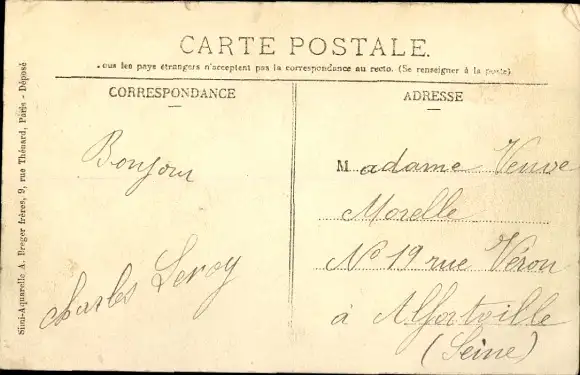 CARTE POSTALE.
ous les pays étrangers n'acceptent pas la correspondance au recto. (Se renseigner à la poste)
CORRESPONDANCE
ADRESSE
Bonjour
Charles Leroy
Madame Veuve
Morelle
No 19 rue Véron
à Alfortville
(Seine)
Simi-Aquarelle A. Breger frères, 9, rue Thénard, Paris - Déposé